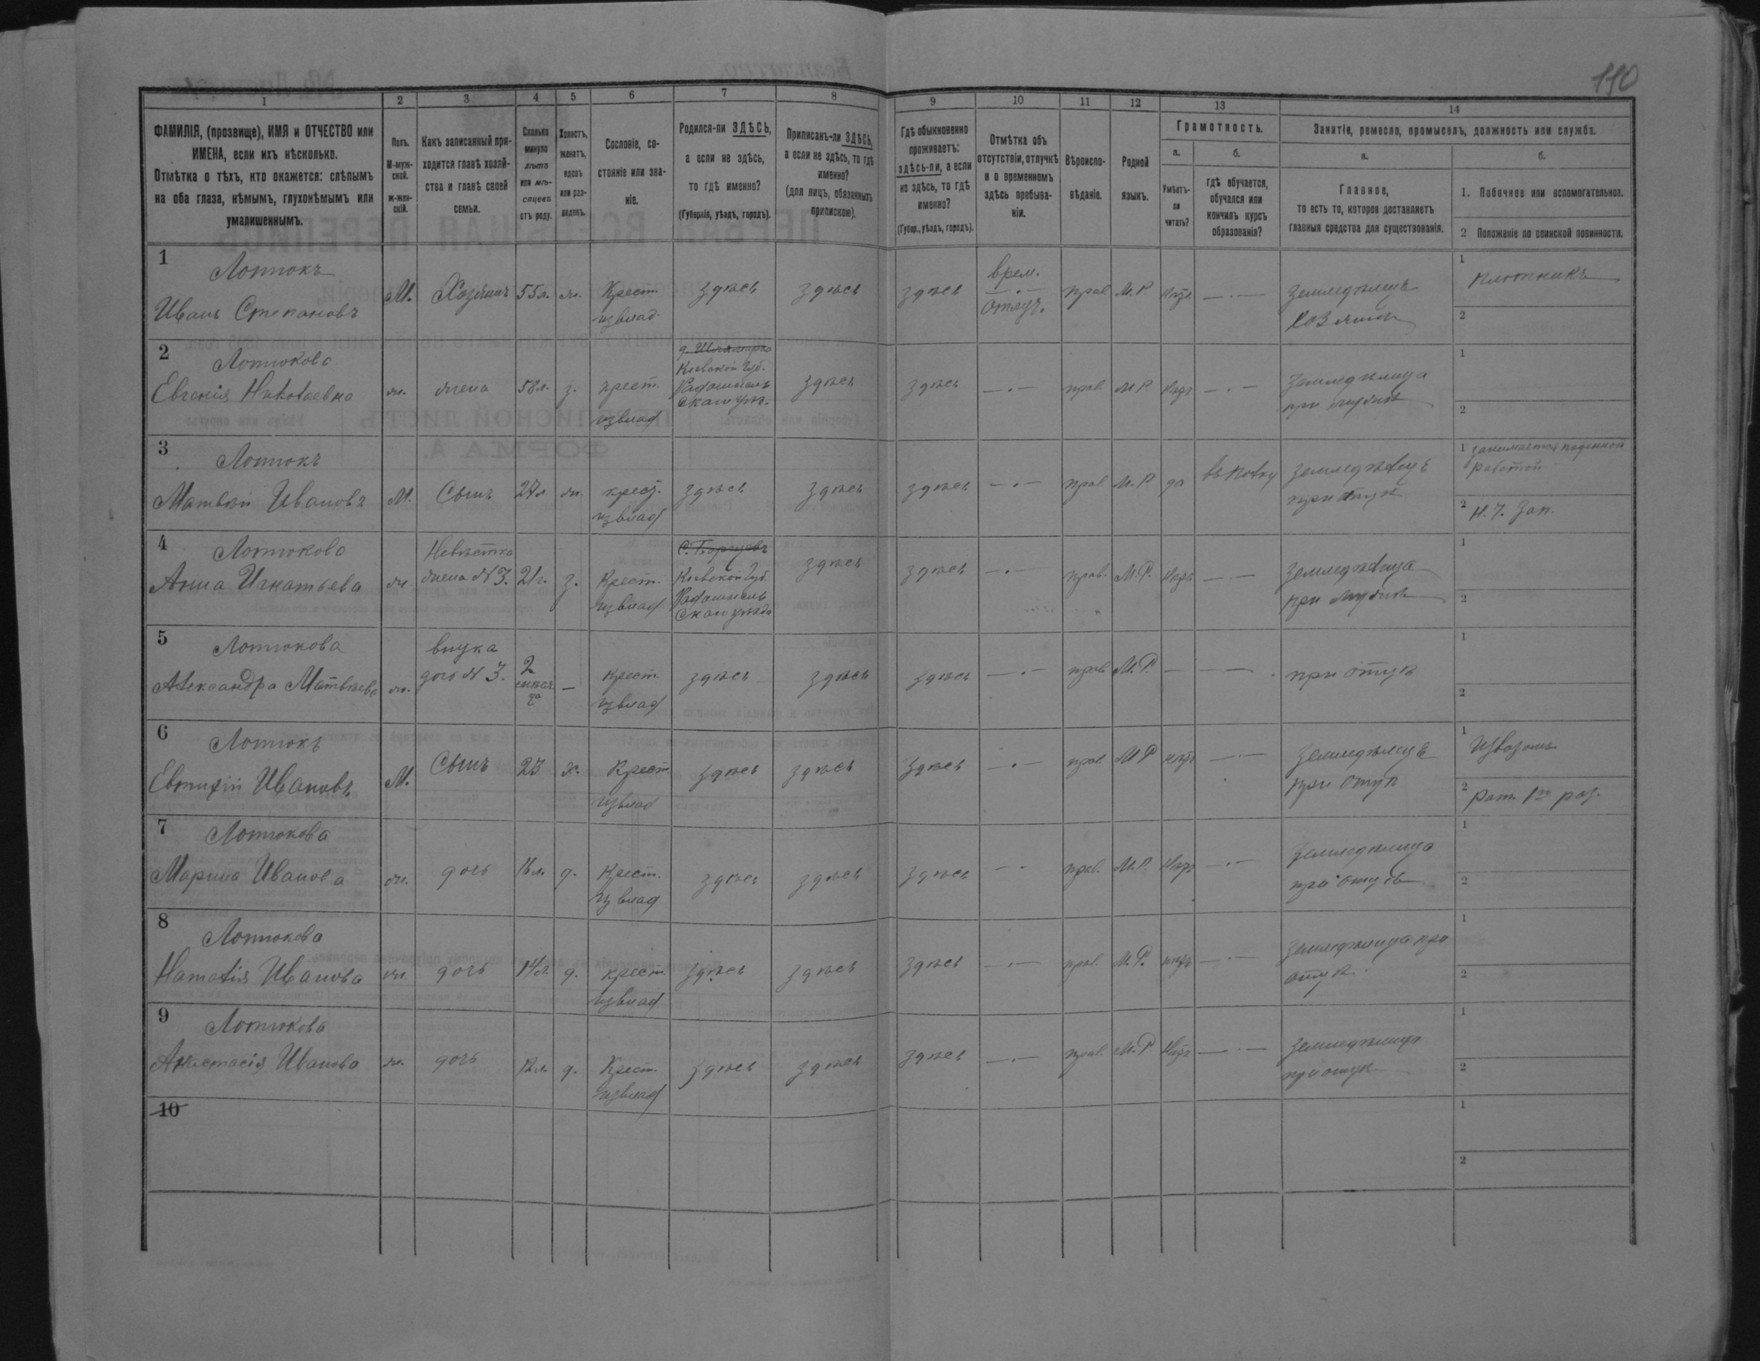 110
1 2 3 4 5 6 7 8 9 10 11 12 13 14
ФАМИЛІЯ, (прозвище), ИМЯ и ОТЧЕСТВО или
ИМЕНА, если ихъ нѣсколько.
Отмѣтка о тѣхъ, кто окажется: слѣпымъ
на оба глаза, нѣмымъ, глухонѣмымъ или
умалишеннымъ.
Полъ.
М-муж-
ской.
ж-жен-
скій.
Какъ записанный при-
ходится главѣ хозяй-
ства и главѣ своей
семьи.
Сколько
минуло
лѣтъ
или мѣ-
сяцевъ
отъ роду.
Холостъ,
женатъ,
вдовъ
или раз-
веденъ.
Сословіе, со-
стояніе или зва-
ніе.
Родился-ли ЗДѢСЬ,
а если не здѣсь,
то гдѣ именно?
(Губернія, уѣздъ, городъ).
Приписанъ-ли ЗДѢСЬ,
а если не здѣсь, то гдѣ
именно?
(для лицъ, обязанныхъ
припискою).
Гдѣ обыкновенно
проживаетъ:
здѣсь-ли, а если
не здѣсь, то гдѣ
именно?
(Губер., уѣздъ, городъ).
Отмѣтка объ
отсутствіи, отлучкѣ
и о временномъ
здѣсь пребыва-
ніи.
Вѣроиспо-
вѣданіе.
Родной
языкъ.
Грамотность.
а.
Умѣетъ-
ли
читать?
б.
гдѣ обучается,
обучался или
кончилъ курсъ
образованія?
Занятіе, ремесло, промыселъ, должность или служба.
а.
Главное,
то есть то, которое доставляетъ
главныя средства для существованія.
б.
1. Побочное или вспомогательное.
2 Положеніе по воинской повинности.
1
Лотюкъ
Иванъ Степановъ
М. Хозяинъ 55л. ж. Крест.
извлад
здѣсь здѣсь здѣсь
врем.
отлуч.
прав. М.Р. нѣтъ
земледѣлецъ
хозяинъ
1 плотникъ
2
2
Лотюкова
Евгенія Николаевна
ж. жена 58л. з. крест.
извлад
Кіевской губ.
Радомысль
скаго уѣз.
здѣсь здѣсь прав. М.Р. нѣтъ
земледѣлица
при мужѣ
1
2
3
Лотюкъ
Матвѣй Ивановъ
М. Сынъ ж. крест.
извлад
здѣсь здѣсь здѣсь прав. М.Р. да въ полку
земледѣлецъ
при отцѣ
1 занимается поденной
работой
2 Н. Ч. Зап.
4
Лотюкова
Анна Игнатьева
ж.
Невѣстка
жена №3.
21г. з. Крест.
извлад
Кіевской губ.
Радомысль
скаго уѣзда
здѣсь здѣсь прав. М.Р. нѣтъ
земледѣлица
при мужѣ
1
2
5
Лотюкова
Александра Матвѣева
ж.
внука
доч №3.
2
мѣся
ца
крест.
извлад
здѣсь здѣсь здѣсь прав. М.Р.
при отцѣ
1
2
6
Лотюкъ
Евтихій Ивановъ
М. Сынъ 23 х. Крест.
извлад
здѣсь здѣсь здѣсь прав М.Р нѣтъ
земледѣлецъ
при отцѣ
1 Извозомъ
2 Рат. 1го раз.
7
Лотюкова
Марина Иванова
ж. дочь 16л. д. Крест.
извлад
здѣсь здѣсь здѣсь прав. М.Р. нѣтъ
земледѣлица
при отцѣ
1
2
8
Лотюкова
Наталія Иванова
ж. дочь 14л. д. крест.
извлад
здѣсь здѣсь здѣсь прав. М.Р. нѣтъ
земледѣлица при
отцѣ
1
2
9
Лотюкова
Анастасія Иванова
ж. дочь 12л. д. Крест.
извлад
здѣсь здѣсь здѣсь прав. М.Р нѣтъ
земледѣлица
при отцѣ
1
2
10
1
2